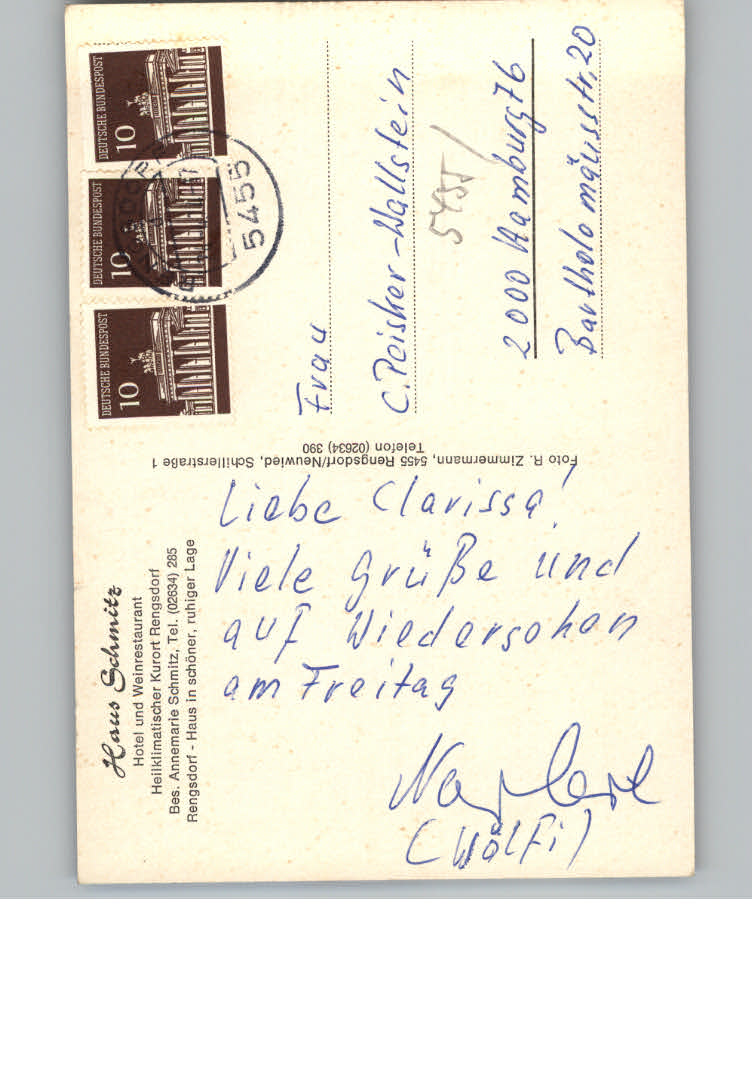 Haus Schmitz
Hotel und Weinrestaurant
Heilklimatischer Kurort Rengsdorf
Bes. Annemarie Schmitz, Tel. (02634) 285
Rengsdorf - Haus in schöner, ruhiger Lage
Liebe Clarissa!
Viele Grüße und
auf Wiedersehen
am Freitag
(Wölfi)
Foto R. Zimmermann, 5455 Rengsdorf/Neuwied, Schillerstraße 1
Telefon (02634) 390
DEUTSCHE BUNDESPOST
10
DEUTSCHE BUNDESPOST
10
DEUTSCHE BUNDESPOST
10
5455
Frau
C. Peisker-Wallstein
5455
2000 Hamburg 76
Bartholomäusstr. 20